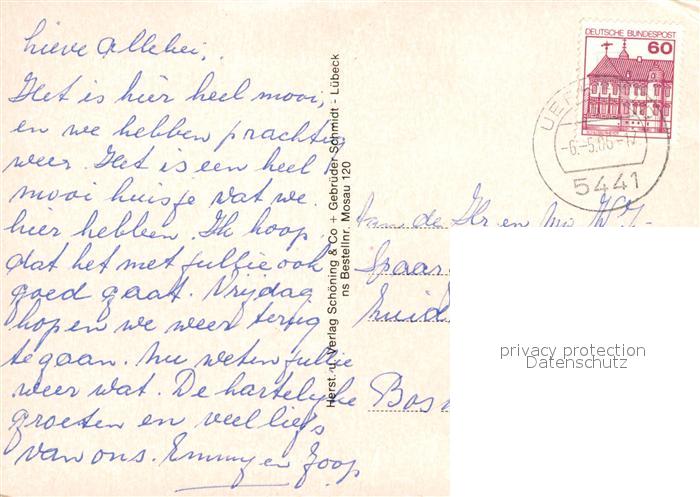 Lieve Allebei,
Het is hier heel mooi,
en we hebben prachtig
weer. Het is een heel
mooi huisje wat we
hier hebben. Ik hoop
dat het met jullie ook
goed gaat. Vrijdag
hopen we weer terug
te gaan. Nu weten jullie
weer wat. De hartelijke
groeten en veel liefs
van ons. Emmy en Joop
Herst. u. Verlag Schöning & Co + Gebrüder Schmidt - Lübeck
ns Bestellnr. Mosau 120
DEUTSCHE BUNDESPOST
60
-6.-5.86-17
5441
Aan de Hr en
Spaar
Zuid
Bos
privacy protection
Datenschutz